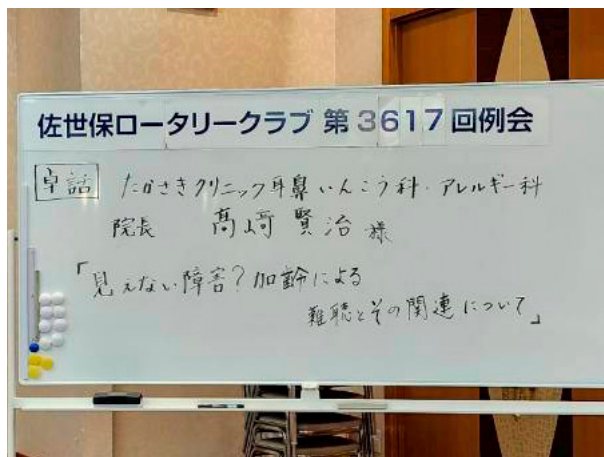 佐世保ロータリークラブ 第3617回例会
卓話 たかさきクリニック耳鼻いんこう科・アレルギー科
院長 髙﨑 賢治 様
「見えない障害?加齢による
難聴とその関連について」